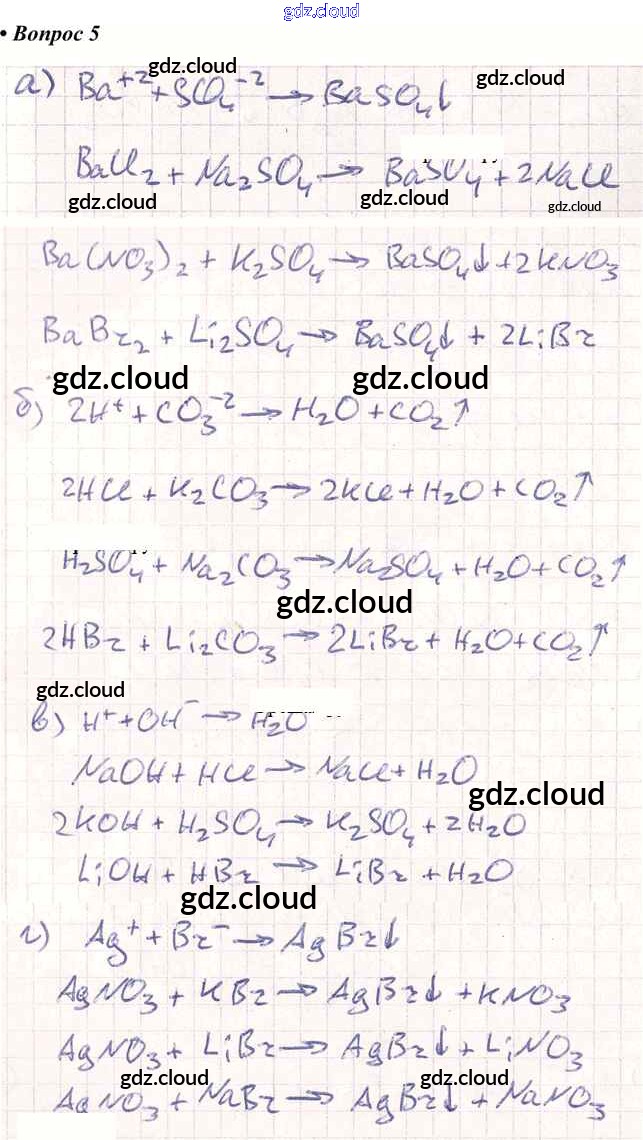 gdz.cloud
• Вопрос 5
gdz.cloud
а) Ba⁺² + SO₄⁻² → BaSO₄↓
gdz.cloud
BaCl₂ + Na₂SO₄ → BaSO₄ + 2NaCl
gdz.cloud
gdz.cloud
gdz.cloud
Ba(NO₃)₂ + K₂SO₄ → BaSO₄↓ + 2KNO₃
BaBr₂ + Li₂SO₄ → BaSO₄↓ + 2LiBr
gdz.cloud
gdz.cloud
б) 2H⁺ + CO₃⁻² → H₂O + CO₂↑
2HCl + K₂CO₃ → 2KCl + H₂O + CO₂↑
H₂SO₄ + Na₂CO₃ → Na₂SO₄ + H₂O + CO₂↑
gdz.cloud
2HBr + Li₂CO₃ → 2LiBr + H₂O + CO₂↑
gdz.cloud
в) H⁺ + OH⁻ → H₂O
NaOH + HCl → NaCl + H₂O
gdz.cloud
2KOH + H₂SO₄ → K₂SO₄ + 2H₂O
LiOH + HBr → LiBr + H₂O
gdz.cloud
г) Ag⁺ + Br⁻ → AgBr↓
AgNO₃ + KBr → AgBr↓ + KNO₃
AgNO₃ + LiBr → AgBr↓ + LiNO₃
gdz.cloud
gdz.cloud
AgNO₃ + NaBr → AgBr↓ + NaNO₃